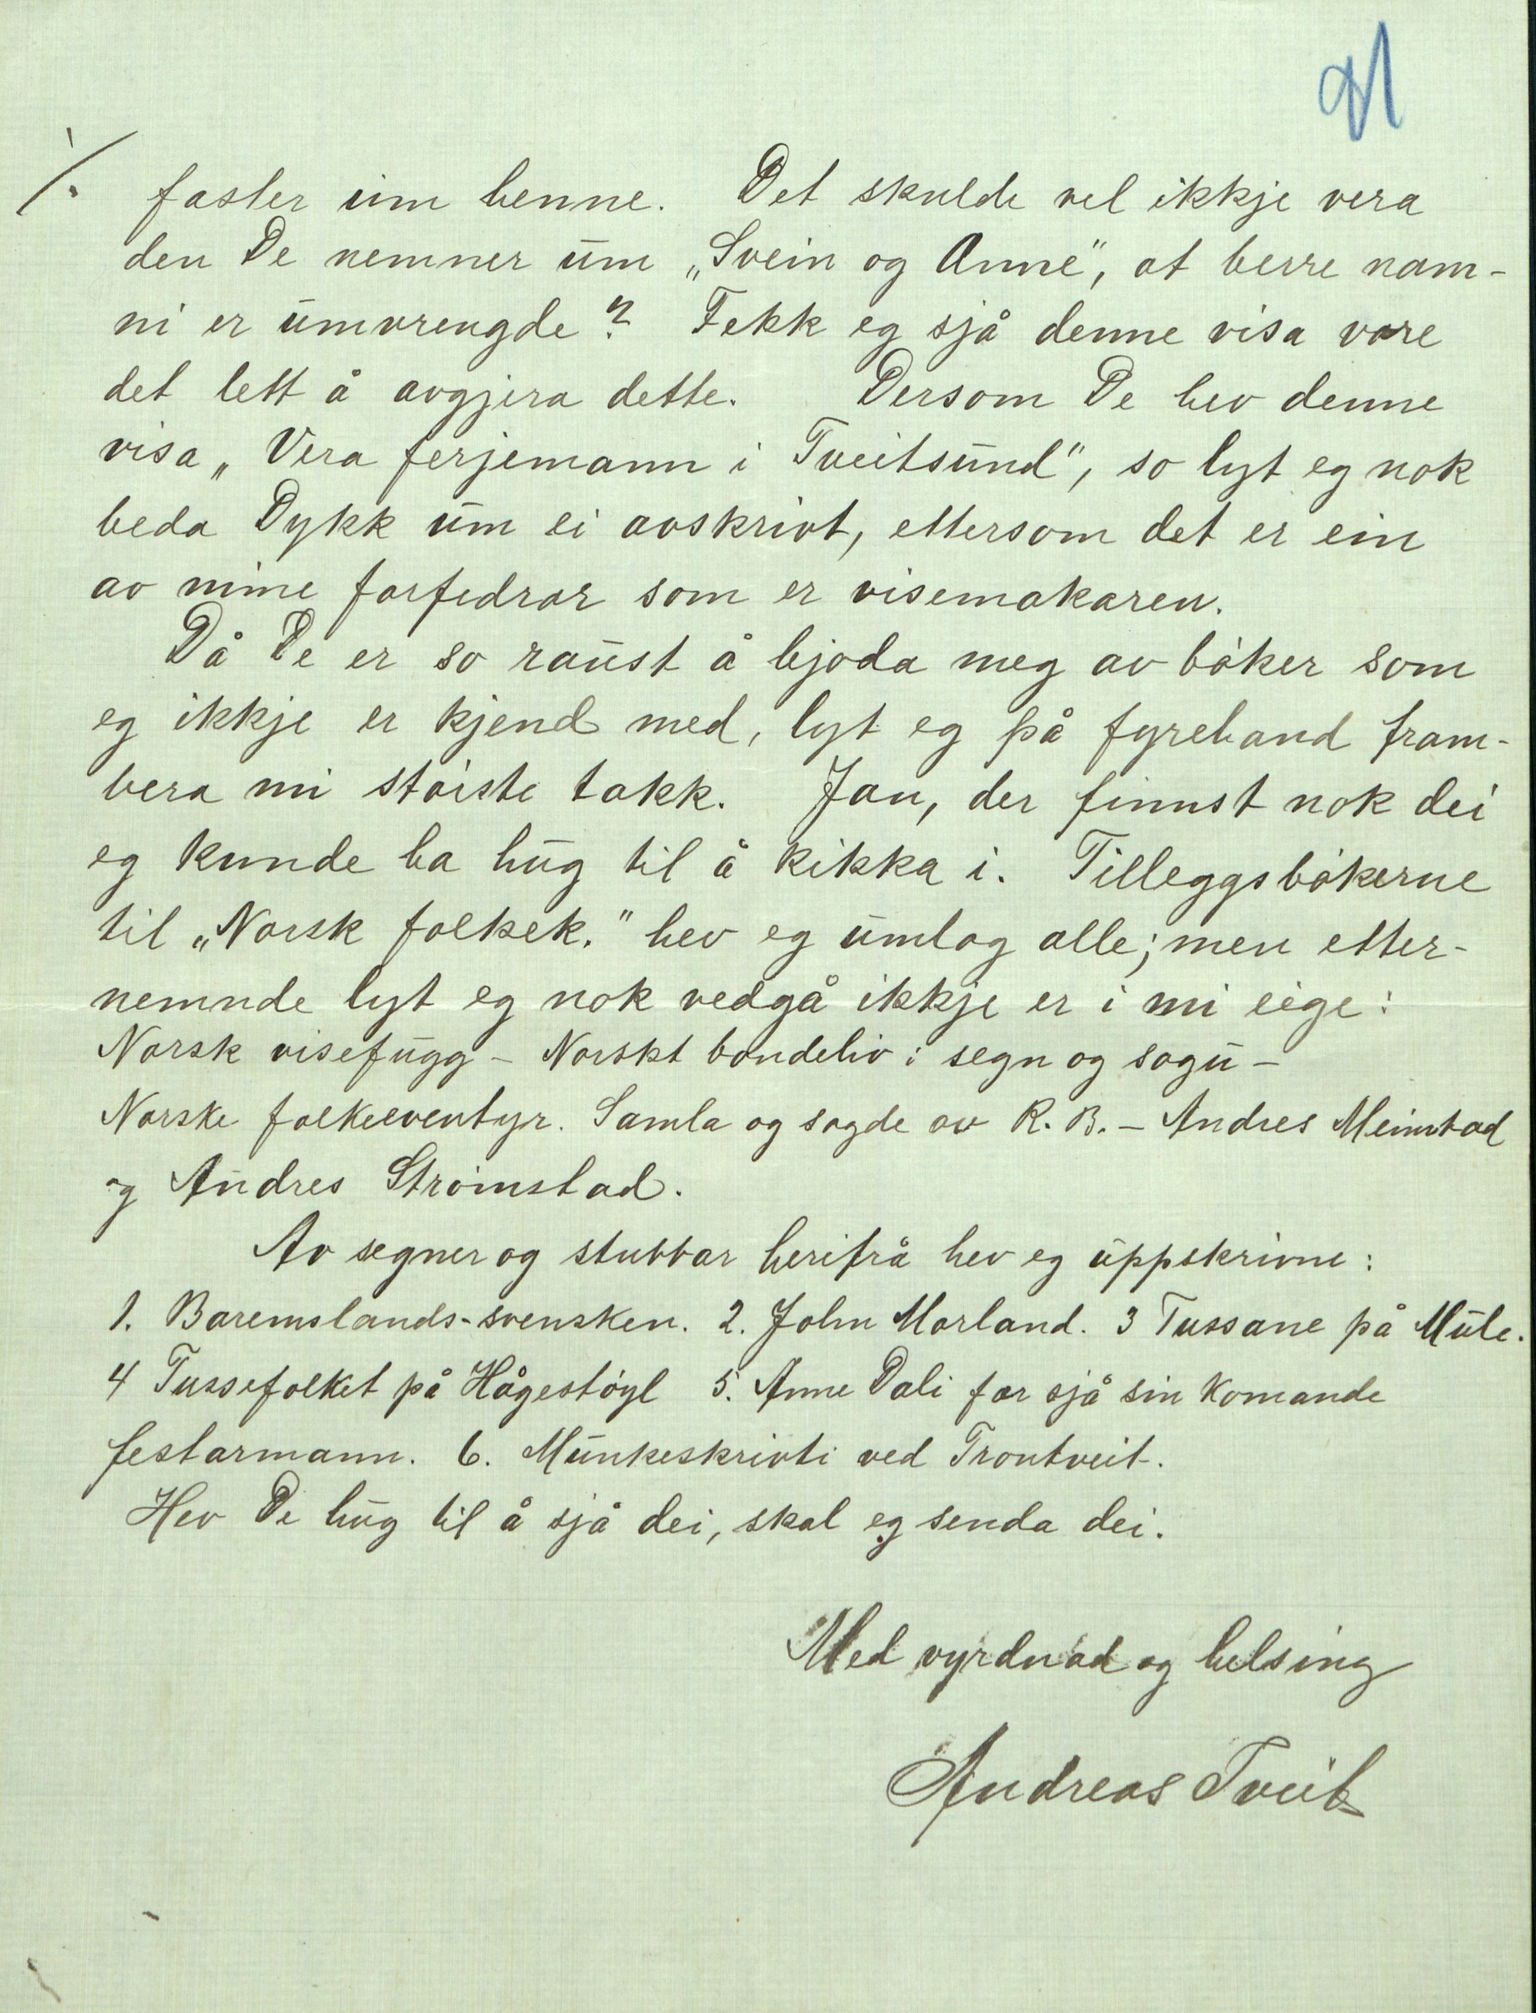 faster um henne. Det skulde vel ikkje vera
den De nemner um „Svein og Anne“, at berre nam-
ni er umvrengde? Fekk eg sjå denne visa vore
det lett å avgjera dette. Dersom De hev denne
visa „Vera ferjemann i Tveitsund“, so lyt eg nok
beda Dykk um ei avskrivt, ettersom det er ein
av mine forfedrar som er visemakaren.
Då De er so raust å bjoda meg av bøker som
eg ikkje er kjend med, lyt eg på fyrehand fram-
bera mi største takk. Jau, der finnst nok dei
eg kunde ha hug til å kikka i. Tilleggsbøkerne
til „Norsk folkek.“ hev eg umlag alle; men etter-
nemnde lyt eg nok vedgå ikkje er i mi eige:
Norsk visefugg – Norskt bondeliv i segn og sogu –
Norske folkeeventyr. Samla og sagde av R. B. – Andres
og Andres Strømstad.
Av segner og stubbar herifrå hev eg uppskrivne:
1. Baremslands-svensken. 2. John Morland. 3 Tussane på Mule.
4 Tussefolket på Hågestøyl 5. Anne Dali fær sjå sin komande
festarmann. 6. Munkeskrivti ved Trontveit.
Hev De hug til å sjå dei, skal eg senda dei.
Med vyrdnad og helsing
Andreas Tveit